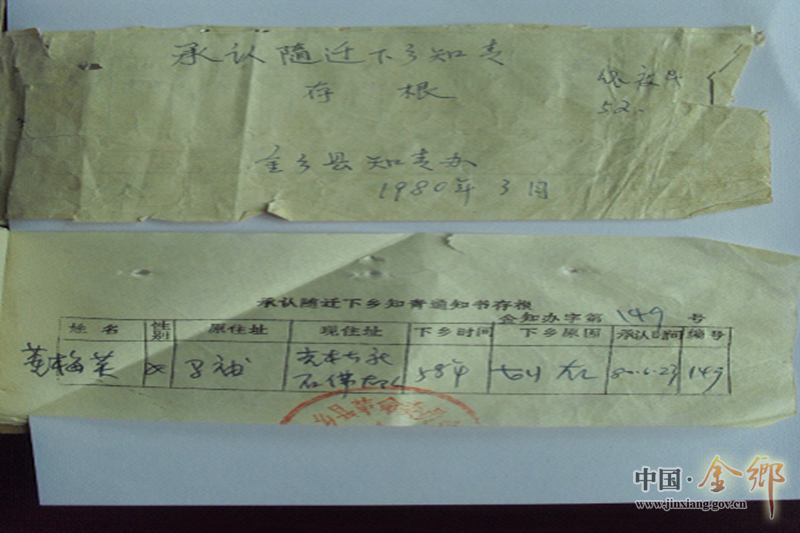 承认随迁下乡知青
存根
52.
金乡县知青办
1980年3月
承认随迁下乡知青通知书存根
金知办字第149号
姓名 性别 原住址 现住址 下乡时间 下乡原因 承认时间 编号
女 58年 80.6.23 149
乡县革命委员
中国·金鄉
www.jinxiang.gov.cn